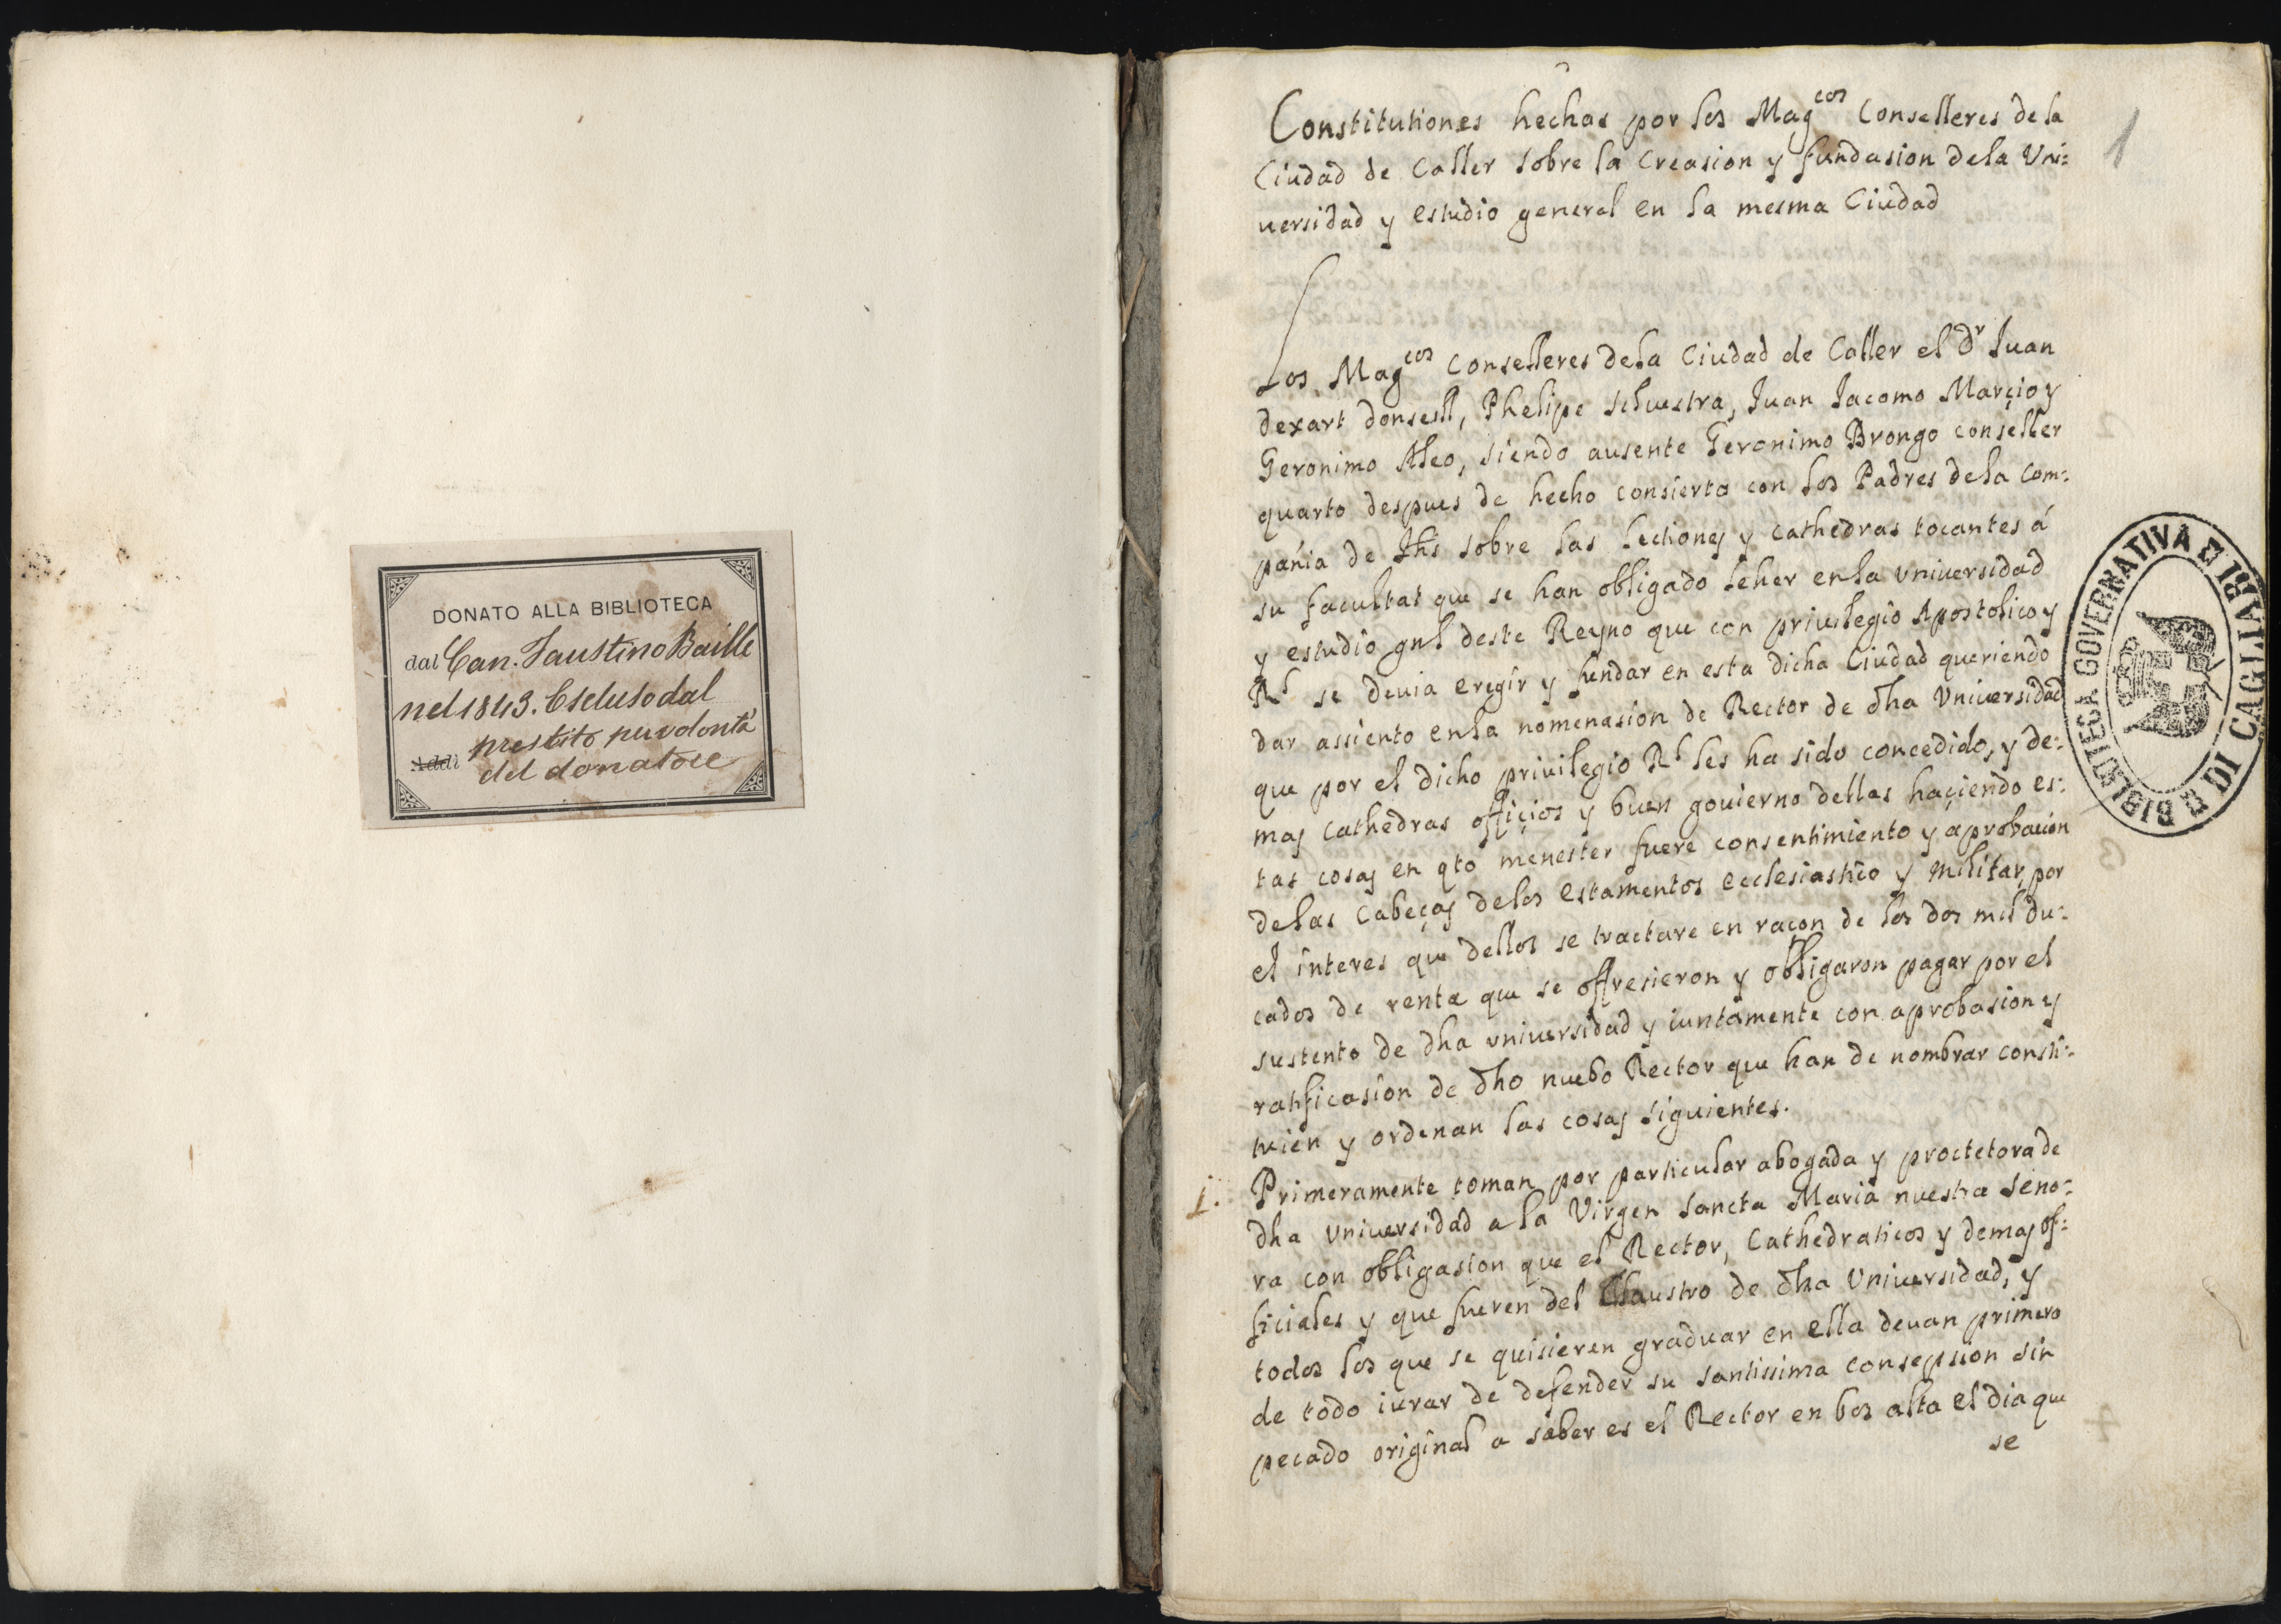 DONATO ALLA BIBLIOTECA
dal Can. Faustino Baille
nel 1843. Escluso dal
prestito per volontà
Addì del donatore
1
Constitutiones hechas por los Magcos Conselleres de la
Ciudad de Caller sobre la Creasion y fundasion dela Vni=
uersidad y estudio general en la mesma Ciudad
Los Magcos Conselleres dela Ciudad de Caller el Dr Juan
dexart donsell, Phelipe seluestra, Juan Jacomo Março y
Geronimo Aleo, siendo ausente Geronimo Brongo conseller
quarto despues de hecho consierto con los Padres dela Com=
pañia de Jhs sobre las lectiones y cathedras tocantes á
su facultat que se han obligado leher enla vniuersidad
y estudio gnl deste Reyno que con priuilegio Apostolico y
Rl se deuia eregir y fundar en esta dicha Ciudad queriendo
dar assiento enla nomenasion de Rector de dha Vniuersidad
que por el dicho priuilegio Rl les ha sido concedido, y de=
mas cathedras offiçios y buen gouierno dellas haçiendo es=
tas cosas en qto menester fuere consentimiento y aprobacion
delas Cabeças delos estamentos ecclesiastico y militar, por
el interes que dellos se tractare en raçon de los dos mil du=
cados de renta que se offresieron y obligaron pagar por el
sustento de dha vniuersidad y iuntamente con aprobasion y
ratificasion de dho nuebo Rector que han de nombrar consti=
tuien y ordenan las cosas siguientes.
1. Primeramente toman por particular abogada y proctetora de
dha vniuersidad a la Virgen Sancta Maria nuestra Seno=
ra con obligasion que el Rector, Cathedraticos y demas of=
ficiales y que fueren del Claustro de dha Vniuersidad, y
todos los que se quisieren graduar en ella deuan primero
de todo iurar de defender su santissima consepsion sin
pecado original a saber es el Rector en bos alta el dia que
se
BIBLIOTECA GOVERNATIVA DI CAGLIARI